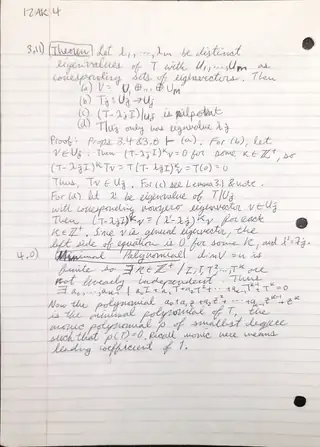 IZAK 4
3.11) Theorem Let λ1, ..., λm be distinct
eigenvalues of T with U1, ..., Um as
corresponding sets of eigenvectors. Then
(a) V = U1 ⊕ ... ⊕ Um
(b) Tj : Uj → Uj
(c) (T-λjI)|Uj is nilpotent
(d) T|Uj only has eigenvalue λj
Proof: Props 3.4 & 3.8 ⊢ (a). For (b), let
v ∈ Uj. Then (T-λjI)^k v = 0 for some k ∈ Z+, so
(T-λjI)^k Tv = T(T-λjI)^k v = T(0) = 0
Thus, Tv ∈ Uj. For (c) see Lemma 3.1 & note.
For (d) let λ' be eigenvalue of T|Uj
with corresponding nonzero eigenvector v ∈ Uj
Then (T-λjI)^k v = (λ'-λj)^k v for each
k ∈ Z+. Since v is general eigenvector, the
left side of equation is 0 for some k, and λ' = λj.
4.0) Minimal Polynomial: dim V = n is
finite so ∃ k ∈ Z+ / I, T, T²...T^k are
not linearly independent. Thus
∃ a0, ..., ak-1 | a0I + a1T + a2T² + ... + ak-1T^k-1 + T^k = 0
Now the polynomial a0 + a1z + a2z² + ... + ak-1z^k-1 + z^k
is the minimal polynomial of T, the
monic polynomial p of smallest degree
such that p(T) = 0. Recall monic here means
leading coefficient of 1.